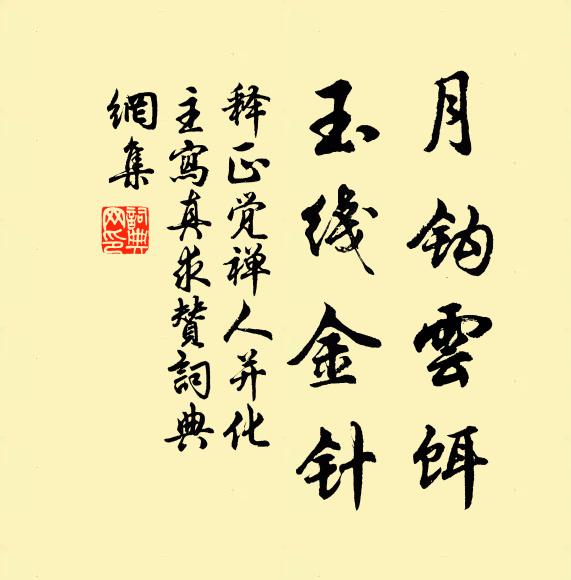 月钩雲饵
玉线金针
释正觉禅人并化
主寫真求赞詞典
網集
詞典网印